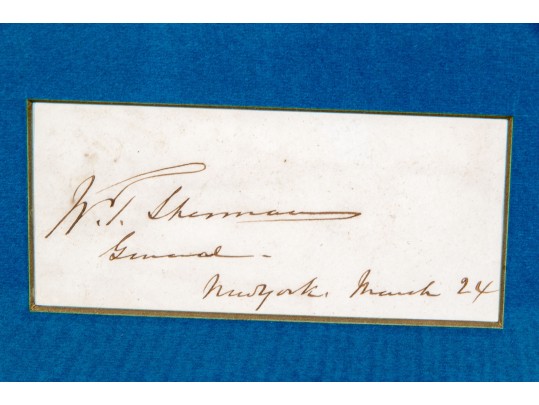 W. T. Sherman
General -
New York. March 24